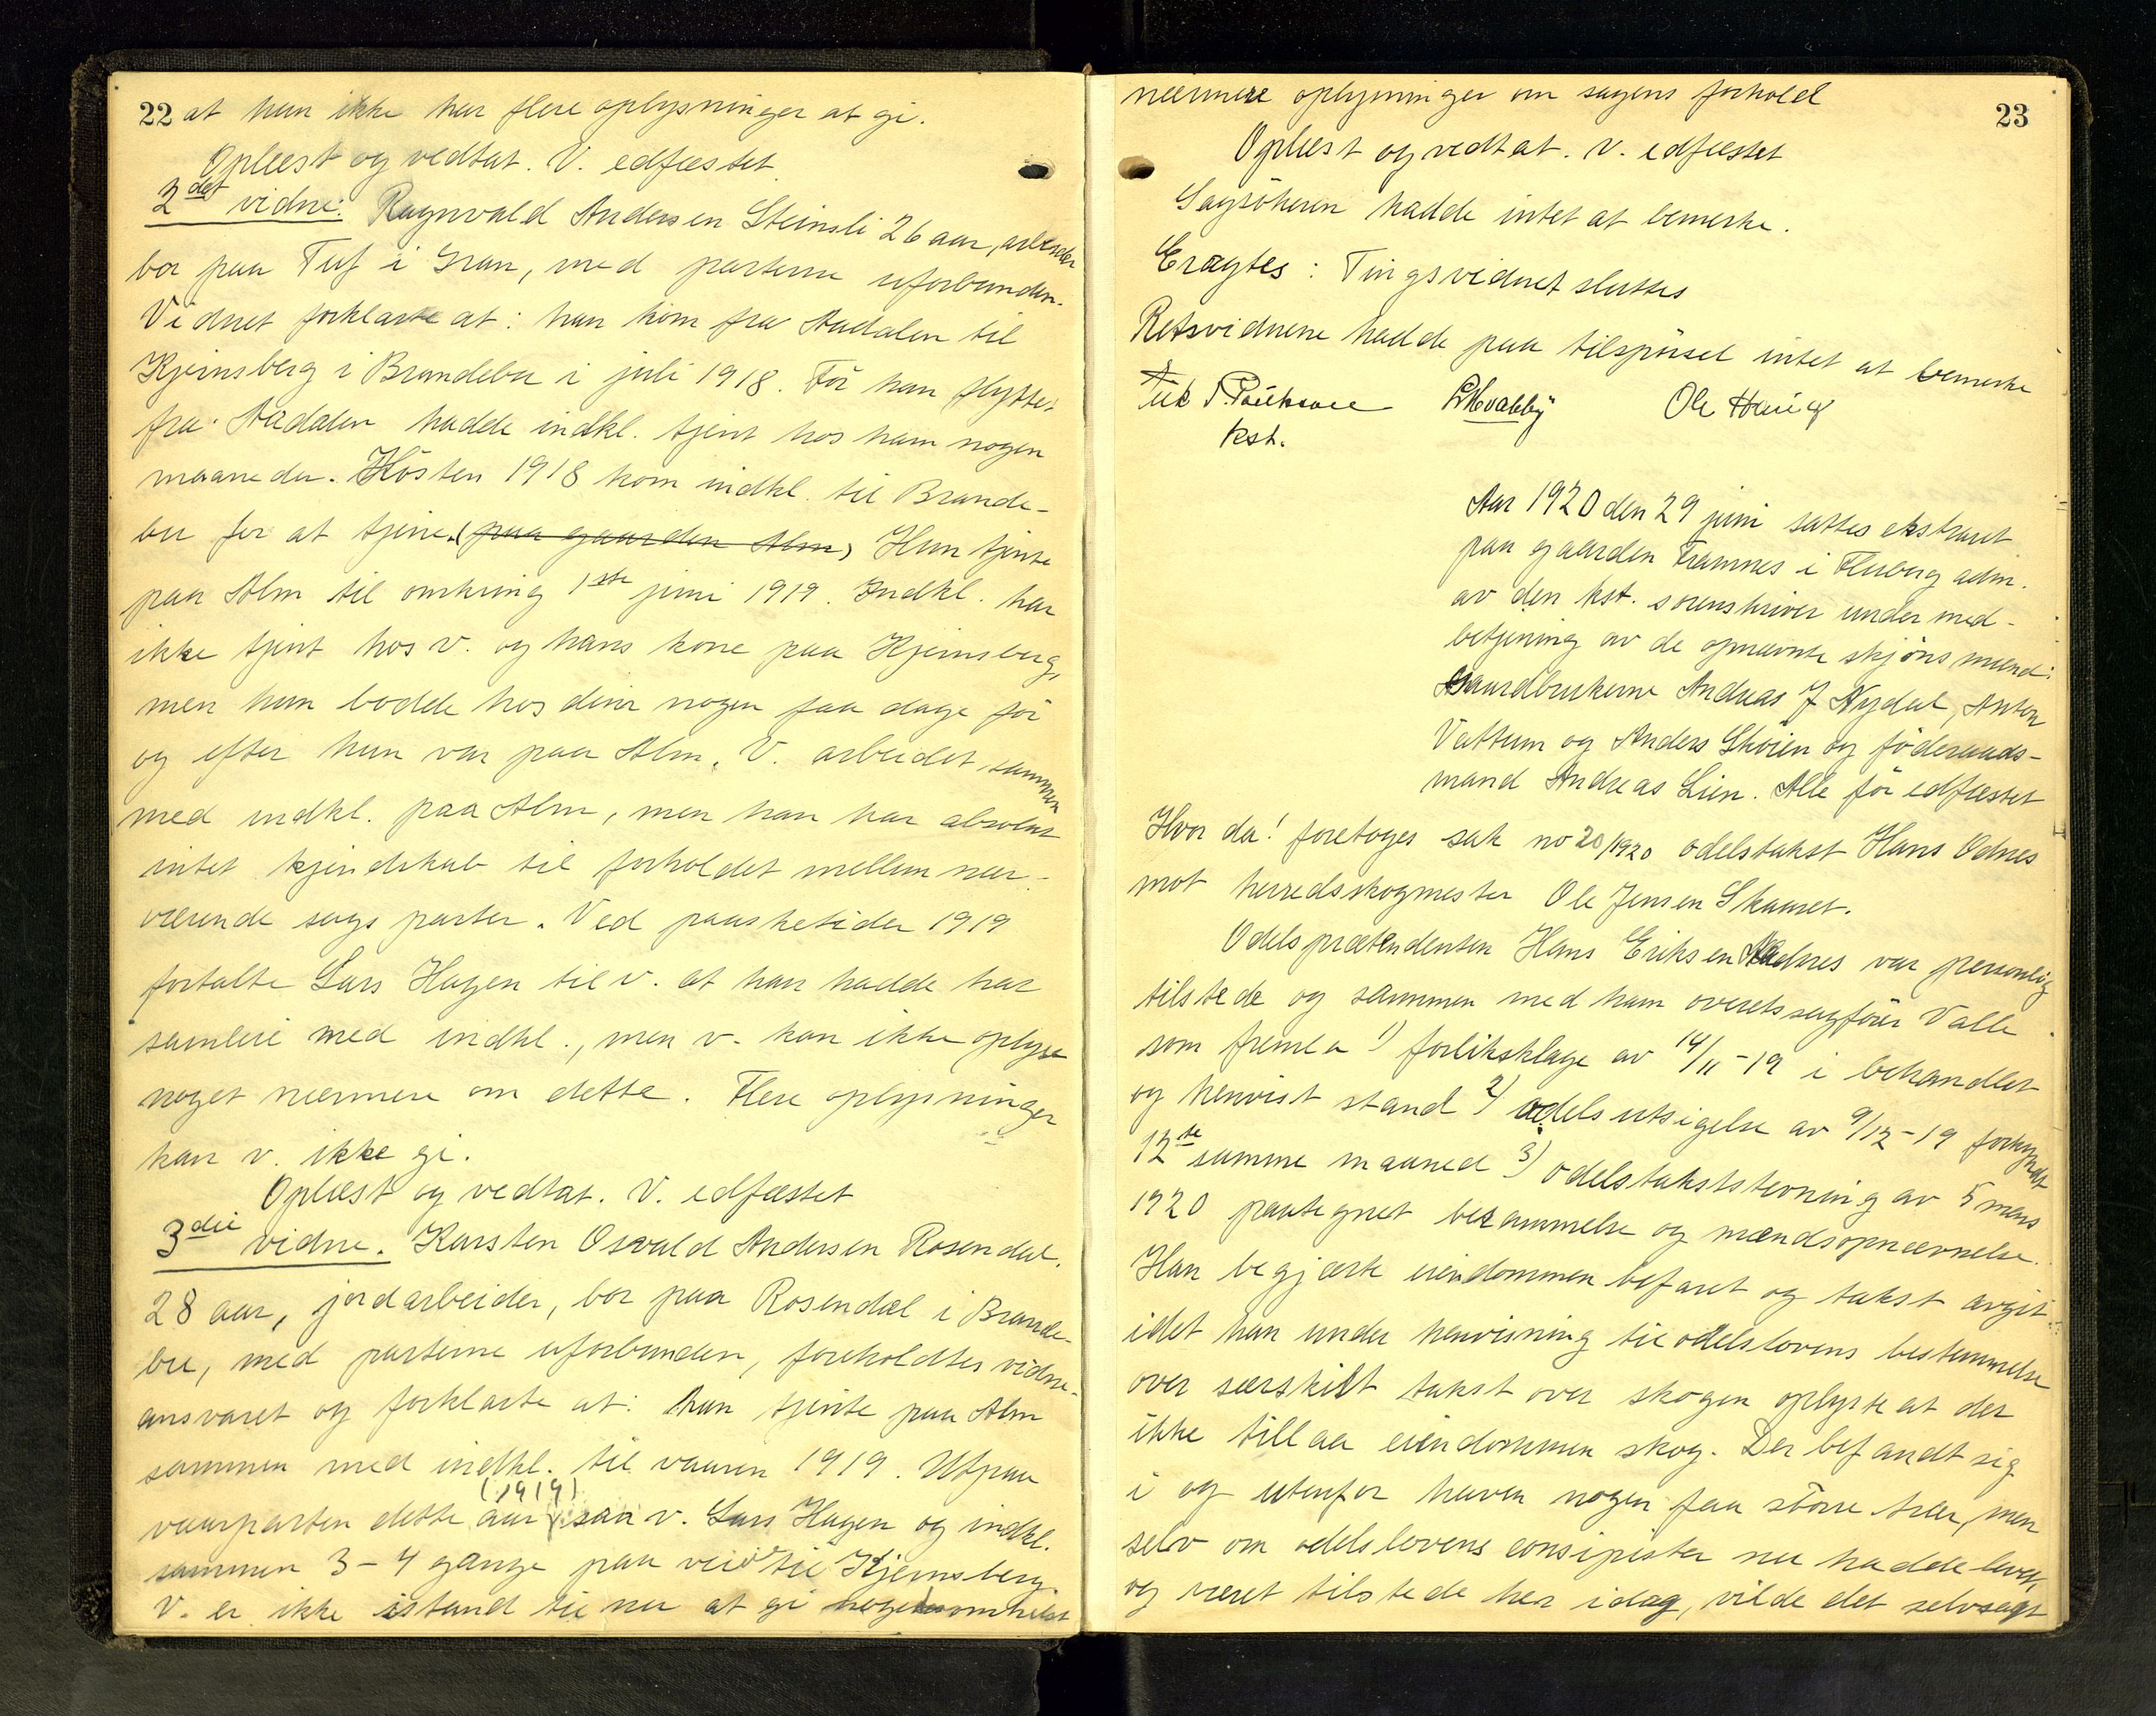 22 at hun ikke har flere oplysninger at gi.
Oplæst og vedtat. V. edfæstet
2det vidne: Ragnvald Andersen Steinsli 26 aar, arbeider
bor paa Tuf i Gran, med parterne uforbunden.
Vidnet forklarte at: han kom fra Aadalen til
Kjernsberg i Brandebu i juli 1918. Før han flyttet
fra Aadalen hadde indkl. tjent hos ham nogen
maaneder. Høsten 1918 kom indkl. til Brande-
bu for at tjene. (paa gaarden Alm) Hun tjente
paa Alm til omkring 1ste juni 1919. Indkl. har
ikke tjent hos v. og hans kone paa Kjernsberg,
men hun bodde hos dem nogen faa dage før
og efter hun var paa Alm. V. arbeidet sammen
med indkl. paa Alm, men han har absolut
intet kjendskab til forholdet mellem nær-
værende sags parter. Ved paasketider 1919
fortalte Lars Hagen til v. at han hadde hat
samleie med indkl., men v. kan ikke oplyse
noget nærmere om dette. Flere oplysninger
kan v. ikke gi.
Oplæst og vedtat. V. edfæstet
3die vidne. Karsten Osvald Andersen Rosendal.
28 aar, jordarbeider, bor paa Rosendal i Brande-
bu, med parterne uforbunden, foreholdtes vidne-
ansvaret og forklarte at: han tjente paa Alm
sammen med indkl. til vaaren 1919. Utpaa
vaarparten dette aar (1919) saa v. Lars Hagen og indkl.
sammen 3-4 gange paa vei til Kjernsberg.
V. er ikke istand til nu at gi nogetsomhelst
23
nærmere oplysninger om sagens forhold
Oplæst og vedtat. V. edfæstet
Sagsökeren hadde intet at bemerke.
Eragtes: Tingsvidnet sluttes
Retsvidnene hadde paa tilspørsel intet at bemerke
Ole Hauig
kst.
Aar 1920 den 29 juni sattes ekstraret
paa gaarden Framnes i Fluberg adm.
av den kst. sorenskriver under med-
betjening av de opnævnte skjønsmænd:
Gaardbrukerne Andreas J Nydal, Anton
Vattum og Anders Skoien og föderaads-
mand Andreas Lien. Alle før edfæstet
Hvor da! foretoges sak no 20/1920 odelstakst Hans Odnes
mot herredsskogmester Ole Jensen Skaaret.
Odelsprætendenten Hans Eriksen Odnes var personlig
tilstede og sammen med ham overretssagfører Valle
som fremla 1) forliksklage av 14/11-19 i behandlet
og henvist stand 2) odelsutsigelse av 9/12-19 forkyndt
12te samme maaned 3) odelstakststevning av 5 mars
1920 paategnet berammelse og mændsopnævnelse.
Han begjærte eiendommen befaret og takst avgit
idet han under henvisning til odelslovens bestemmelse
over særskilt takst over skogen oplyste at der
ikke tillaa eiendommen skog. Der befandt sig
i og utenfor haven nogen faa större trær, men
selv om odelslovens concipister nu hadde levet,
og været tilstede her idag, vilde det selvsagt